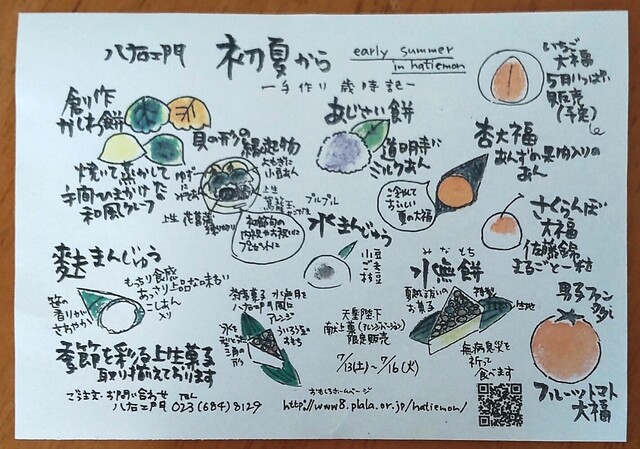 八右エ門
初夏から
early summer
in hatiemon
ー手作り歳時記ー
いちご
大福
5月いっぱい
販売
(予定)
創作
かしわ餅
焼いて蒸かして
手間ひまかけた
和風クレープ
貝の形の
縁起物
上生
初節句の
内祝やお祝いに
プレゼントに
あじさい餅
道明寺に
ミルクあん
杏大福
あんずの果肉入りの
あん
夏の大福
さくらんぼ
大福
佐藤錦
まるごと一粒
麩まんじゅう
もっちり食感
あっさり上品な味わい
こしあん
入り
笹の
香りが
さわやか
プルプル
水まんじゅう
小豆
ごま
枝豆
みなもち
水無餅
夏越し祓いの
お菓子
特製
生地
無病息災を
祈って
食べます
男子ファン
多し
フルーツトマト
大福
八右エ門風に
アレンジ
ういろう生の
もち
氷を
型どった
三角の
形
天皇陛下
献上菓(アレンジバージョン)
限定販売
7/13(土)～7/16(火)
季節を彩る上生菓子
取り揃えております
ご注文・お問い合わせ TEL
八右エ門 023(684)8129
おもしろホームページ
http://www8.plala.or.jp/hatiemon/